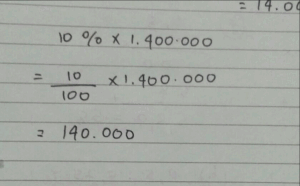 = 14.00
10 % x 1.400.000
= 10/100 x 1.400.000
= 140.000